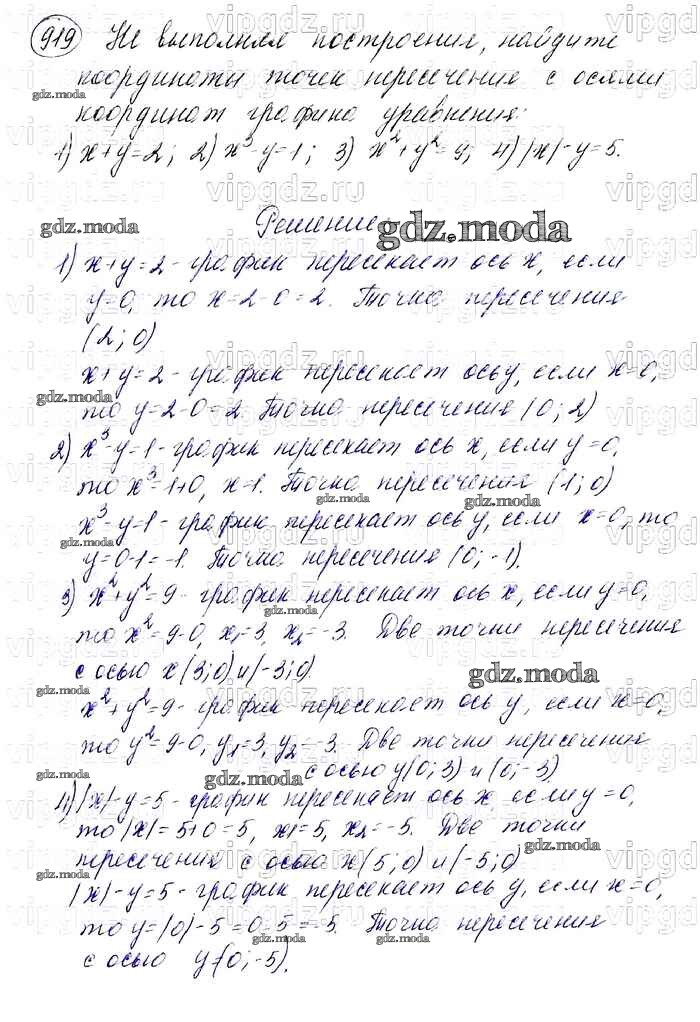 919 Не выполняя построения, найдите
координаты точек пересечения с осями
координат графика уравнения:
1) x+y=2; 2) x³-y=1; 3) x²+y²=9; 4) |x|-y=5.
Решение.
gdz.moda
gdz.moda
1) x+y=2 - график пересекает ось x, если
y=0, то x=2-0=2. Точка пересечения
(2; 0)
x+y=2 - график пересекает ось y, если x=0,
gdz.moda
то y=2-0=2. Точка пересечения (0; 2)
2) x³-y=1 - график пересекает ось x, если y=0,
то x³=1+0, x=1. Точка пересечения (1; 0)
gdz.moda
gdz.moda
x³-y=1 - график пересекает ось y, если x=0, то
gdz.moda
y=0-1=-1. Точка пересечения (0; -1).
3) x²+y²=9 - график пересекает ось x, если y=0,
gdz.moda
то x²=9-0, x₁=3, x₂=-3. Две точки пересечения
с осью x (3; 0) и (-3; 0)
gdz.moda
gdz.moda
x²+y²=9 - график пересекает ось y, если x=0,
то y²=9-0, y₁=3, y₂=-3. Две точки пересечения
с осью y (0; 3) и (0; -3)
gdz.moda
4) |x|-y=5 - график пересекает ось x, если y=0,
то |x|=5+0=5, x₁=5, x₂=-5. Две точки
gdz.moda
пересечения с осью x (5; 0) и (-5; 0)
gdz.moda
|x|-y=5 - график пересекает ось y, если x=0,
то y=|0|-5=0-5=-5. Точка пересечения
gdz.moda
gdz.moda
с осью y (0; -5).